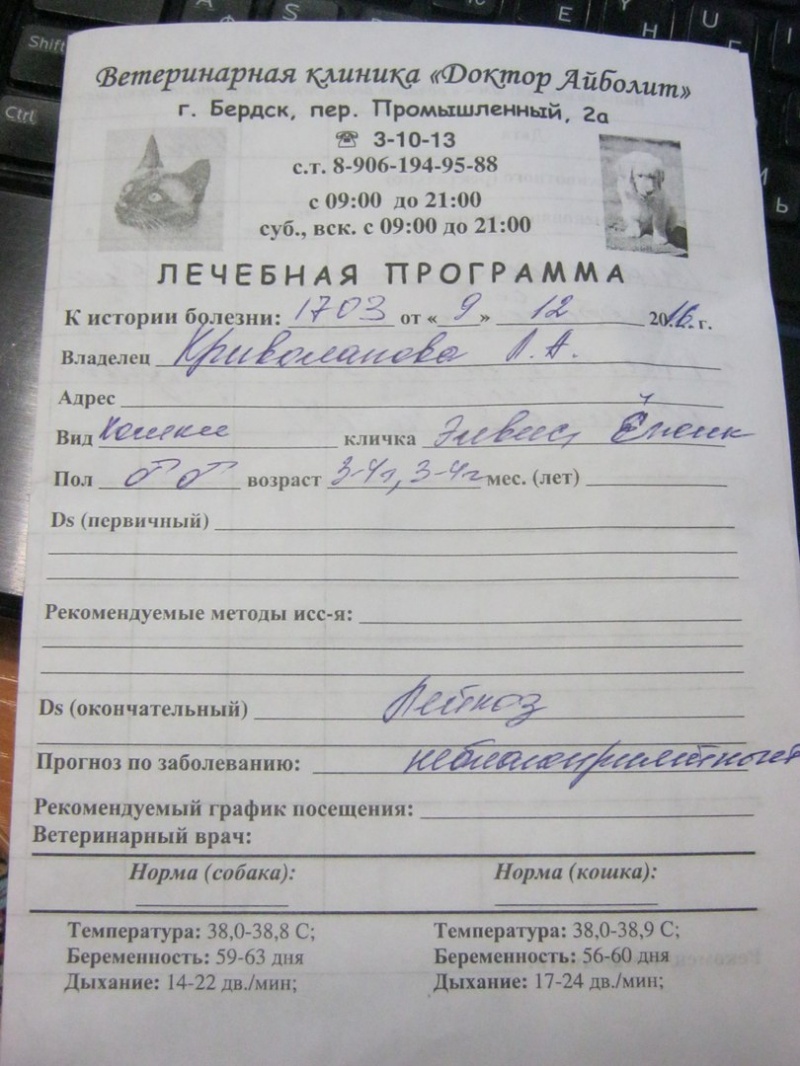 Ветеринарная клиника «Доктор Айболит»
г. Бердск, пер. Промышленный, 2а
☎ 3-10-13
с.т. 8-906-194-95-88
с 09:00 до 21:00
суб., вск. с 09:00 до 21:00
ЛЕЧЕБНАЯ ПРОГРАММА
К истории болезни: 1703 от «9» 12 2016 г.
Владелец Криволапова Л. А.
Адрес
Вид Кошки кличка Элвис,
Пол ♂ ♂ возраст 3-4г, 3-4г мес. (лет)
Ds (первичный)
Рекомендуемые методы исс-я:
Ds (окончательный) Лейкоз
Прогноз по заболеванию: неблагоприятный
Рекомендуемый график посещения:
Ветеринарный врач:
Норма (собака): Норма (кошка):
Температура: 38,0-38,8 С; Температура: 38,0-38,9 С;
Беременность: 59-63 дня Беременность: 56-60 дня
Дыхание: 14-22 дв./мин; Дыхание: 17-24 дв./мин;
Shift
Ctrl